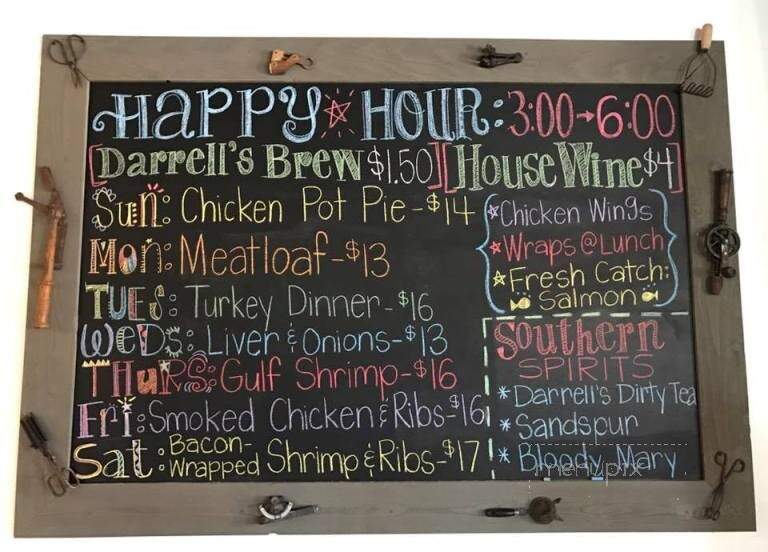 HAPPY HOUR: 3:00→6:00
[Darrell's Brew $1.50] [House Wine $4]
Sun: Chicken Pot Pie-$14
Mon: Meatloaf-$13
Tues: Turkey Dinner-$16
Weds: Liver & Onions-$13
Thurs: Gulf Shrimp-$16
Fri: Smoked Chicken & Ribs-$16
Sat: Bacon-Wrapped Shrimp & Ribs-$17
Chicken Wings
Wraps @ Lunch
Fresh Catch:
Salmon
Southern
SPIRITS
* Darrell's Dirty Tea
* Sandspur
* Bloody Mary
menupix